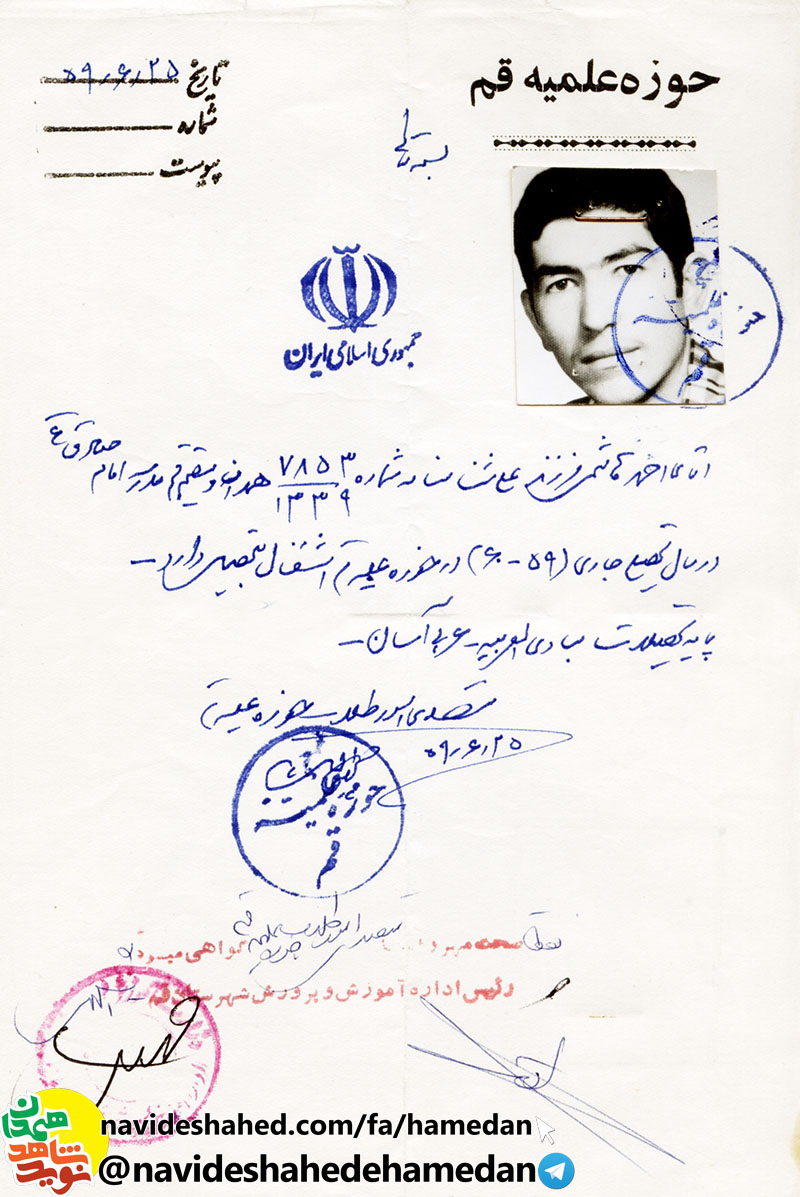 حوزه علمیه قم
تاریخ ۵۹٫۶٫۲۵
شماره
پیوست
بسمه تعالی
جمهوری اسلامی ایران
آقای احمد هاشمی فرزند شناسنامه شماره ۷۸۵۳ / ۱۳۳۹ همدان و مقیم قم مدرسه امام صادق ع
در سال تحصیلی جاری (۵۹-۶۰) در حوزه علمیه قم اشتغال بتحصیل دارد-
پایه تحصیلات مبادی العربیه - عربی آسان-
متصدی امور طلاب حوزه علمیه قم
۵۹٫۶٫۲۵
حوزه علمیه
قم
فقط صحت مهر و گواهی میگردد
رئیس اداره آموزش و پرورش شهرستان قم
نوید شاهد همدان
navideshahed.com/fa/hamedan
@navideshahedehamedan